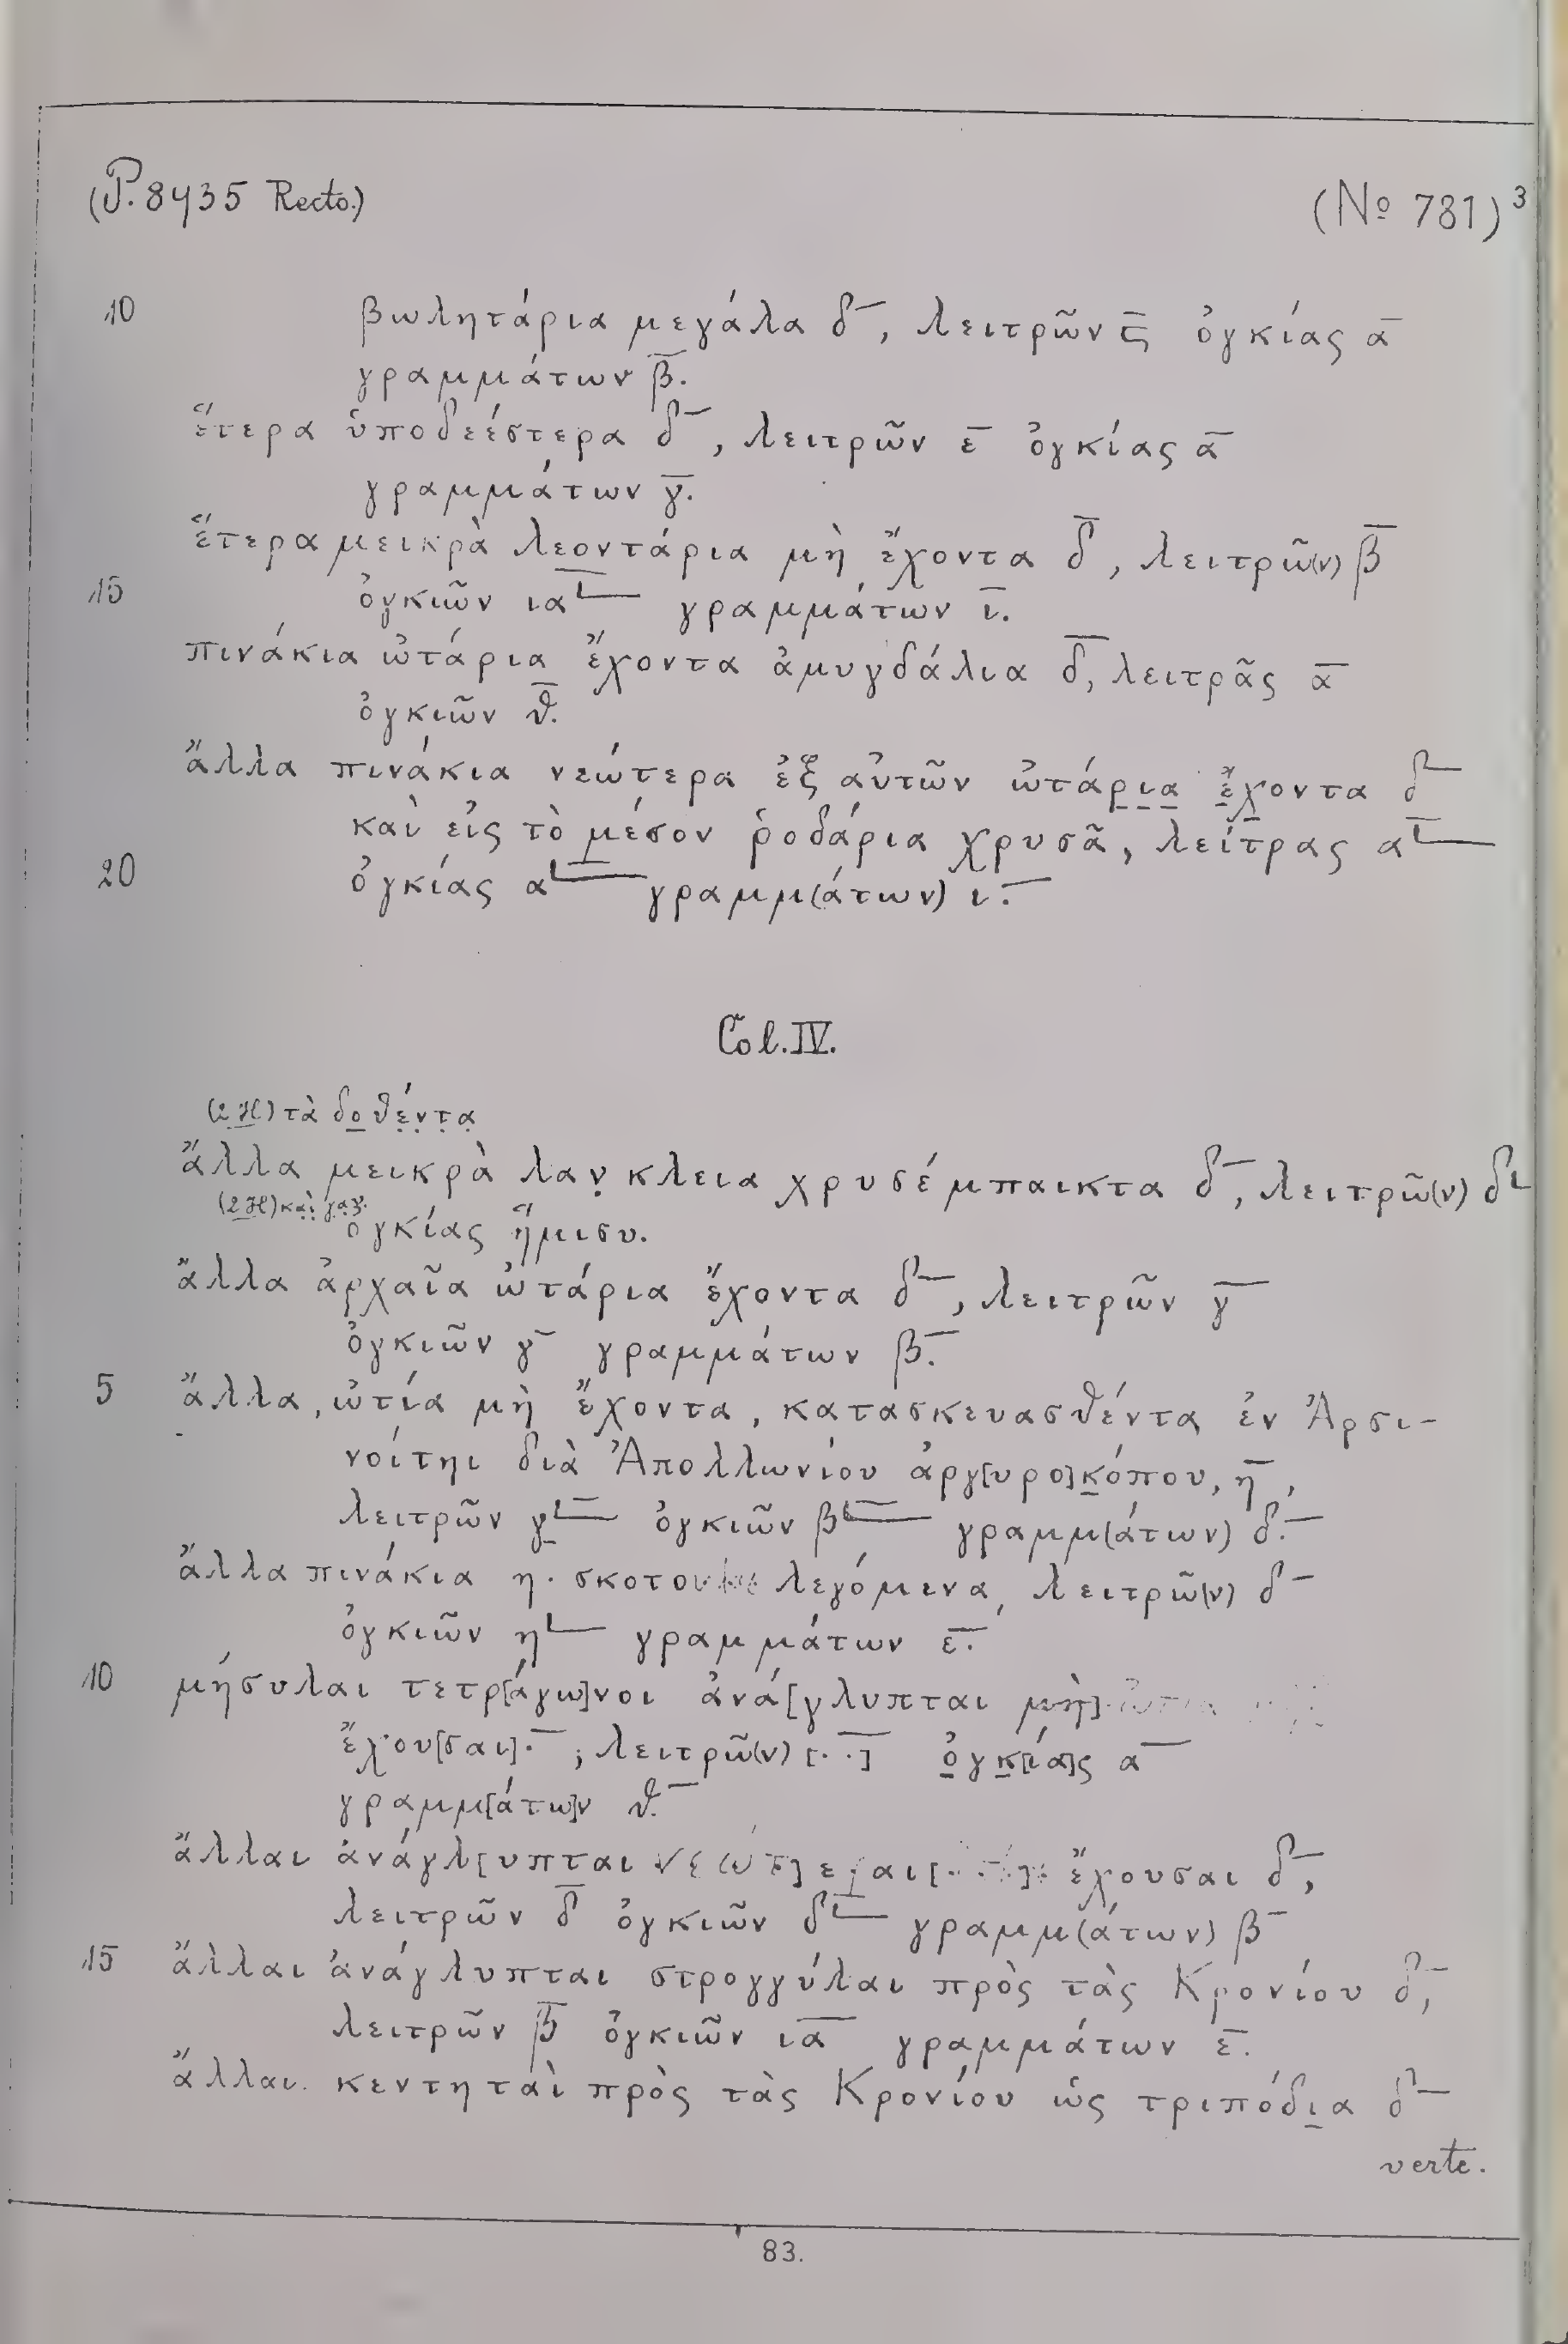 (P. 8935 Recto.) (No 781)³
10 βωλητάρια μεγάλα δ̅, λειτρῶν ϛ̅ ὀγκίας α̅
γραμμάτων β̅.
ἕτερα ὑποδεέστερα δ̅, λειτρῶν ε̅ ὀγκίας α̅
γραμμάτων γ̅.
ἕτερα μεικρὰ λεοντάρια μὴ ἔχοντα δ̅, λειτρῶ(ν) β̅
15 ὀγκιῶν ια𐅵 γραμμάτων ι̅.
πινάκια ὠτάρια ἔχοντα ἀμυγδάλια δ̅, λειτρᾶς α̅
ὀγκιῶν θ̅.
ἄλλα πινάκια νεώτερα ἐξ αὐτῶν ὠτάρι̣α̣ ἔ̣χοντα δ̅
καὶ εἰς τὸ μέσον ῥοδάρια χρυσᾶ, λείτρας α𐅵
20 ὀγκίας α𐅵 γραμμ(άτων) ι̅.
Col. IV.
(2 H) τὰ δο̣θέ̣ν̣τ̣α̣
ἄλλα μεικρὰ λαν̣κλεια χρυσέμπαικτα δ̅, λειτρῶ(ν) δι
(2 H) κα̣ὶ̣
ὀγκίας ἥμισυ.
ἄλλα ἀρχαῖα ὠτάρια ἔχοντα δ̅, λειτρῶν γ̅
ὀγκιῶν γ̅ γραμμάτων β̅.
5 ἄλλα, ὠτία μὴ ἔχοντα, κατασκευασθέντα ἐν Ἀρσι-
νοίτηι διὰ Ἀπολλωνίου ἀργ[υρο]κ̣όπου, η̅,
λειτρῶν γ̣𐅵 ὀγκιῶν β𐅵 γραμμ(άτων) δ̅.
ἄλλα πινάκια η. λεγόμενα, λειτρῶ(ν) δ̅
ὀγκιῶν η𐅵 γραμμάτων ε̅.
10 μήσυλαι τετρ[άγω]νοι ἀνά[γλυπται μὴ]
ἔχου[σαι] . ̅, λειτρῶ(ν) [. .] ὀ̣γκ̣[ία]ς α̅
γραμμ[άτω]ν θ̅.
ἄλλαι ἀνάγλ[υπται νεωτ]εραι [. . . .] ἔχουσαι δ̅,
λειτρῶν δ̅ ὀγκιῶν δ𐅵 γραμμ(άτων) β̅
15 ἄλλαι ἀνάγλυπται στρογγύλαι πρὸς τὰς Κρονίου δ̅,
λειτρῶν β̅ ὀγκιῶν ια̅ γραμμάτων ε̅.
ἄλλαι κεντηταὶ πρὸς τὰς Κρονίου ὡς τριπόδι̣α δ̅
verte.
83.